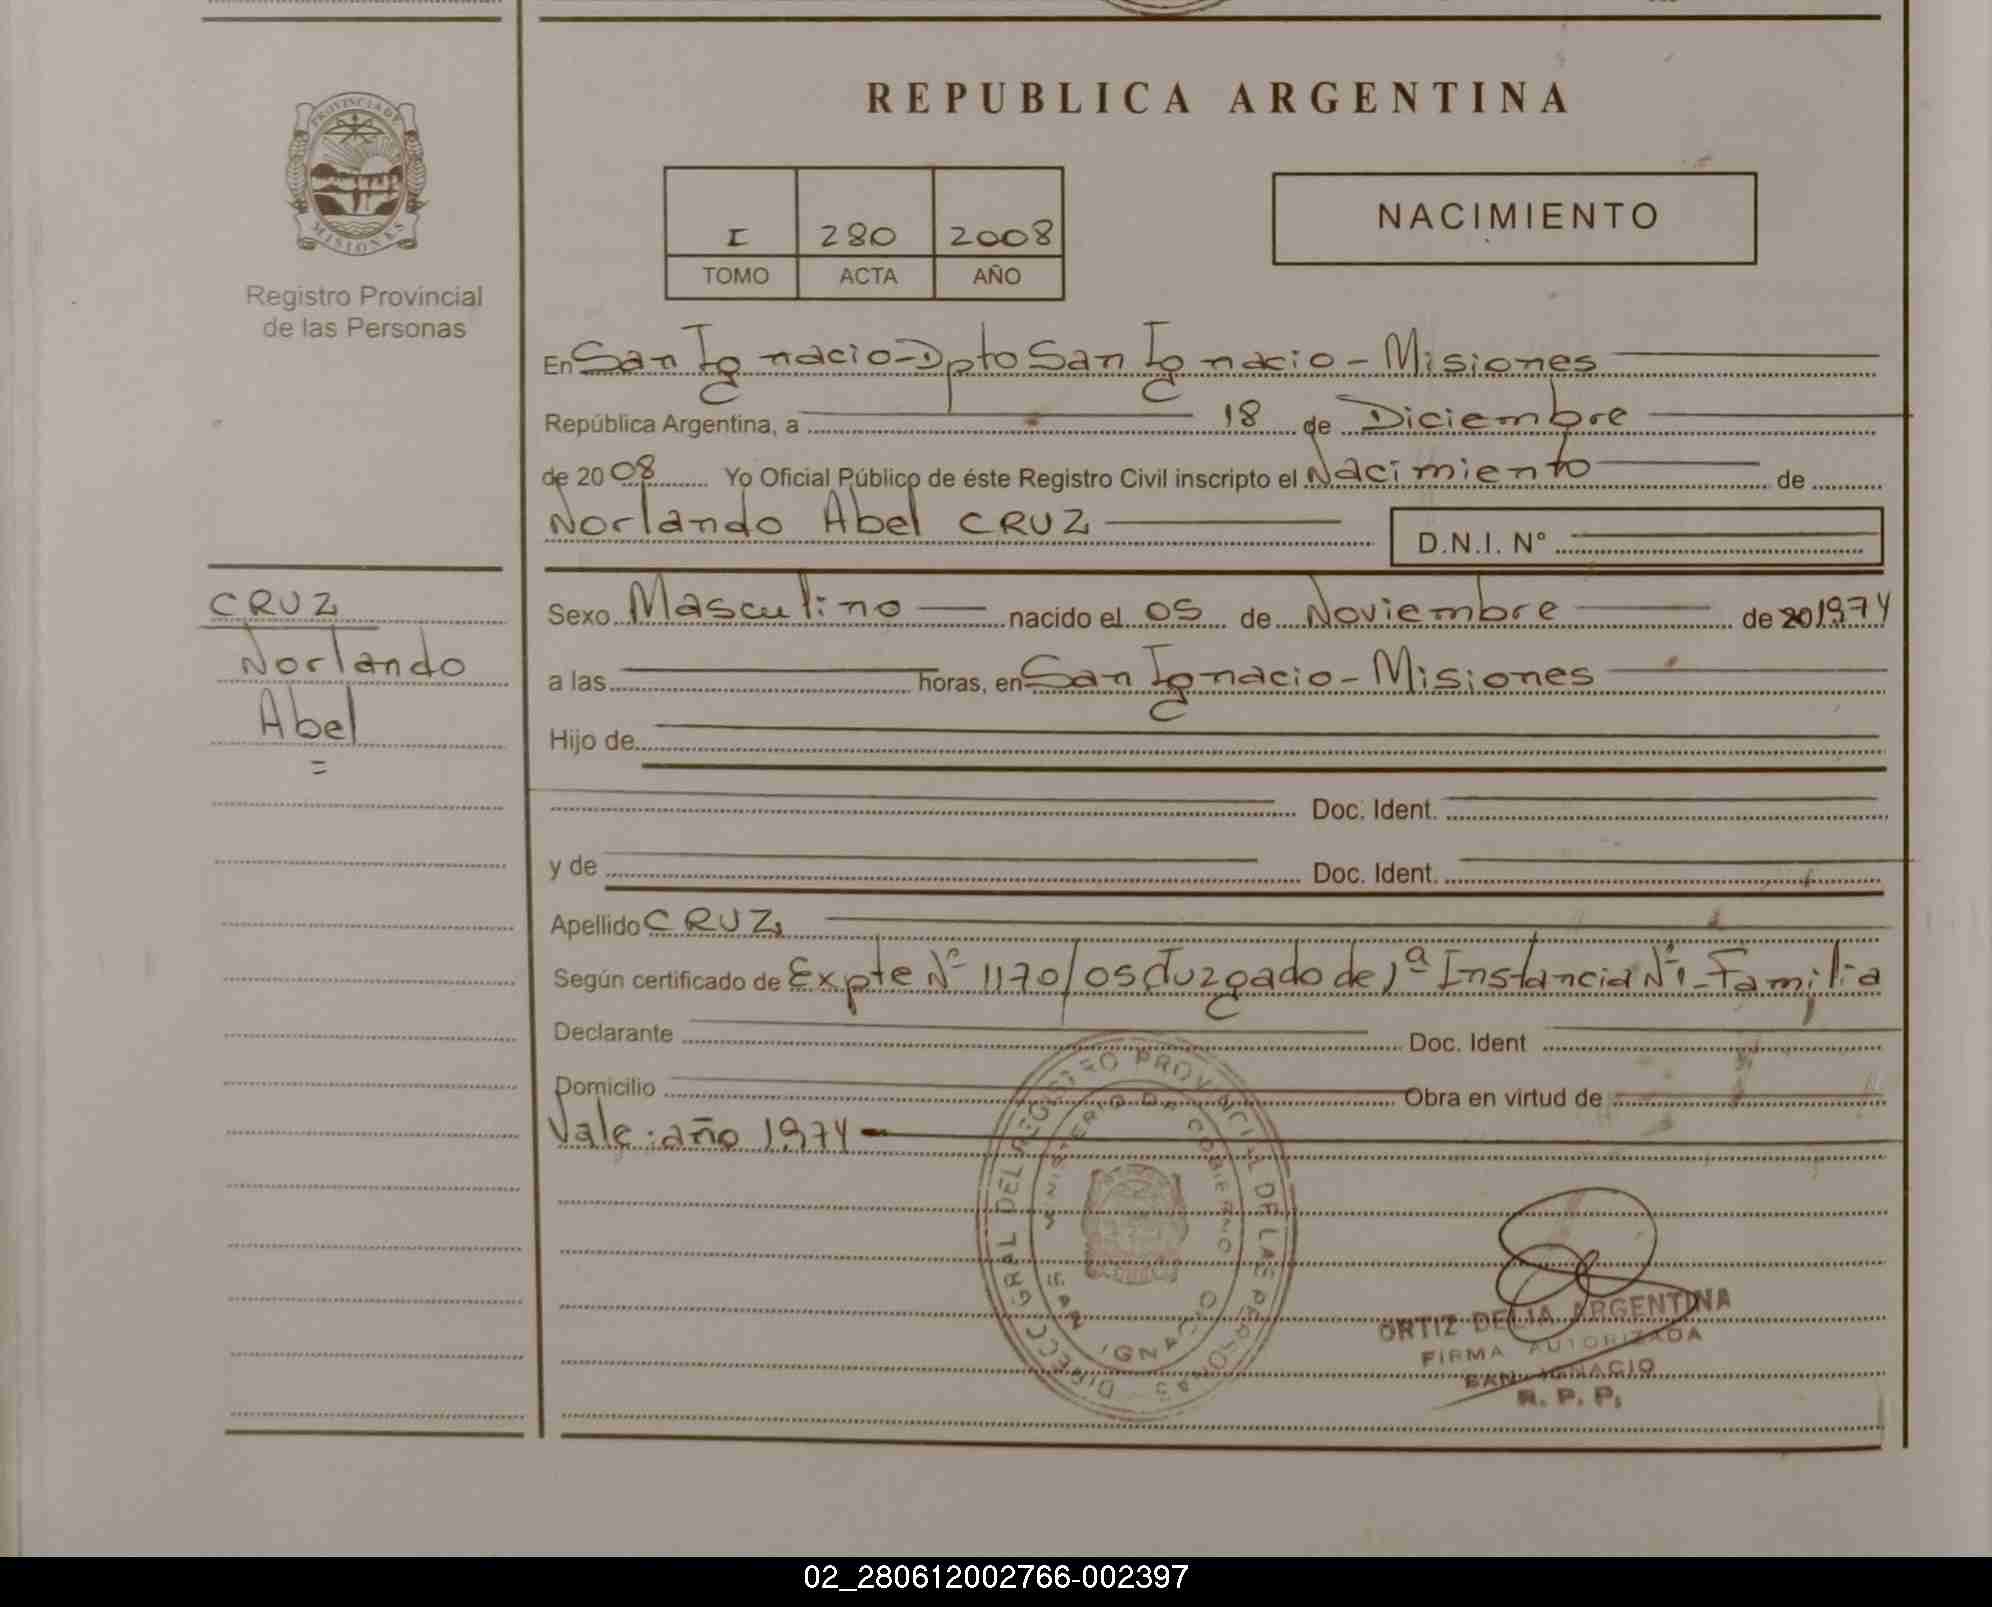 REPUBLICA ARGENTINA
PROVINCIA DE
MISIONES
Registro Provincial
de las Personas
I 280 2008
TOMO ACTA AÑO
NACIMIENTO
En San Ignacio-Dpto San Ignacio-Misiones
República Argentina, a 18 de Diciembre
de 2008 Yo Oficial Público de éste Registro Civil inscripto el Nacimiento de
Norlando Abel CRUZ D.N.I. N°
CRUZ
Norlando
Abel
=
Sexo Masculino nacido el 05 de Noviembre de 201974
a las horas, en San Ignacio-Misiones
Hijo de
Doc. Ident.
y de Doc. Ident.
Apellido CRUZ
Según certificado de Expte Nº 1170/05 Juzgado de 1ª Instancia Nº1-Familia
Declarante Doc. Ident
Domicilio Obra en virtud de
Vale: año 1974
DIRECC GRAL DEL REGISTRO PROVINCIAL DE LAS PERSONAS
MINISTERIO DE GOBIERNO
SAN IGNACIO
ORTIZ DELIA ARGENTINA
FIRMA AUTORIZADA
SAN IGNACIO
R. P. P.
02_280612002766-002397